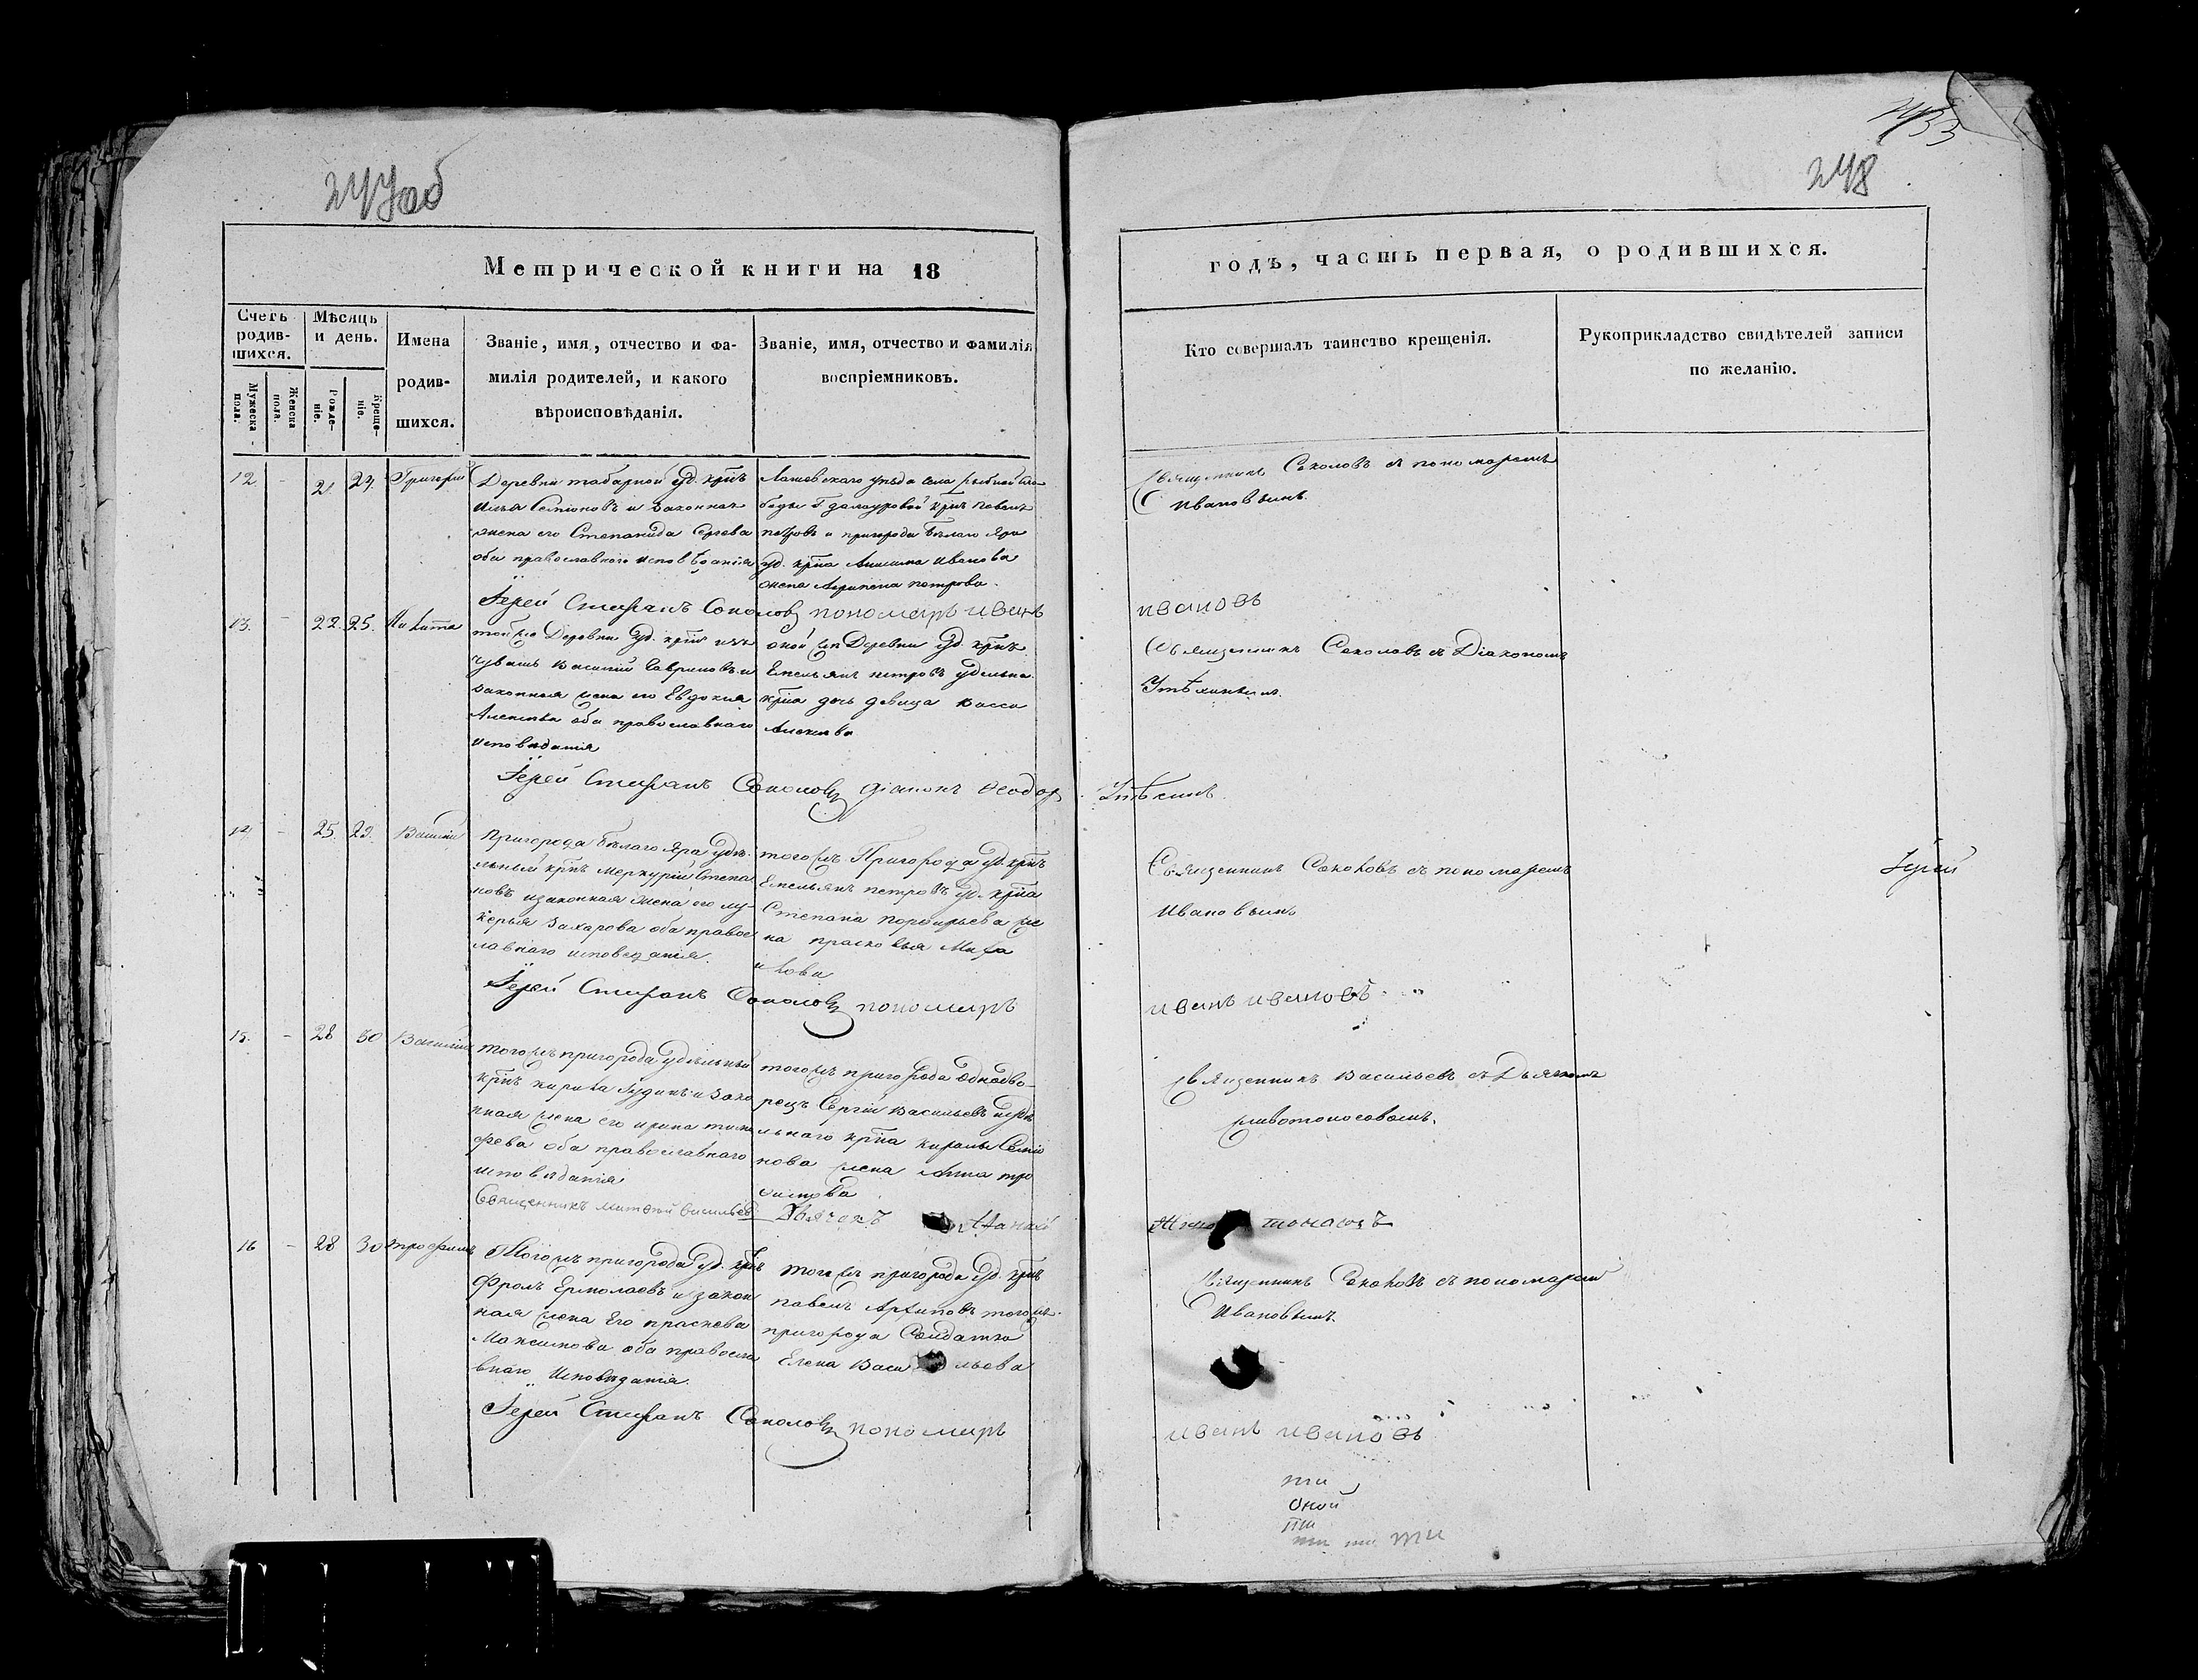 247об
248
Метрической книги на 18
годъ, часть первая, о родившихся.
Счетъ родив-шихся.
Мѣсяцъ и день.
Имена родив-шихся.
Званіе, имя, отчество и фа-
милія родителей, и какого
вѣроисповѣданія.
Званіе, имя, отчество и фамилія
воспріемниковъ.
Кто совершалъ таинство крещенія.
Рукоприкладство свидѣтелей записи
по желанію.
Мужеска пола.
Женска пола.
Рожде-ніе.
Креще-ніе.
12 - 21 24. Григорій
Деревни табарной уд. крнъ
Илья Семіоновъ и законная
жена его Степанида Сергева
оба православного исповѣданія
Лашевскаго уезда села рыбной сло
боды крнъ павелъ
петровъ и пригорода бѣлаго Яра
уд. крна Иванова
жена Агрипена петрова.
Священникъ Соколовъ съ пономаремъ
Ивановымъ.
Іерей Стефанъ Соколовъ пономарь иванъ
ивановъ
13. - 22. 25. Никита
той же Деревни уд. крнъ изъ
чувашъ Василий Гавриловъ и
законная жена его Евдокия
Алексѣева оба православнаго
исповѣдания
оной же Деревни уд. крнъ
Емельянъ петровъ удельна
крна дочь девица васса
Алексѣва
Священникъ Соколовъ съ Діакономъ
Утѣхинымъ.
Іерей Стефанъ Соколовъ діаконъ Ѳеодоръ
Утѣхинъ.
14 - 25. 29. Василій
Пригорода бѣлаго Яра удѣ-
льный крнъ меркурій Степа
новъ и законная жена его лу-
керья Захарова оба правос
лавнаго исповедания.
того жъ Пригорода уд. крнъ
Емельянъ петровъ уд. крна
Степана порфирьева же
на прасковья Миха
илова
Священникъ Соколовъ съ пономаремъ
Ивановымъ
Іерей
Іерей Стефанъ Соколовъ пономарь
иванъ ивановъ
15. - 28 30 Василий
того жъ пригорода удѣльный
крнъ кирила Гудинъ и зако
нная жена его ирина тимо
фева оба православнаго
исповѣдания
того жъ пригорода Однодво-
рецъ Сергій Васильевъ и удѣ
льнаго крна кирилы Семіо
нова жена Анна тро
фимова
Священникъ Васильевъ съ Дьячкомъ
Священникъ матѳей васильевъ
Дьячокъ
16 - 28 30 трофимъ
Того жъ пригорода уд. крнъ
Фролъ Ермолаевъ и закон
ная жена Его праскева
Максимова оба правосла
внаго исповѣдания.
того жъ пригорода уд. крнъ
павелъ Архиповъ того жъ
пригорода Солдатка
Елена Васильева
Священникъ Соколовъ съ пономаремъ
Ивановымъ.
Іерей Стефанъ Соколовъ пономарь
иванъ ивановъ
ти
оной
ти